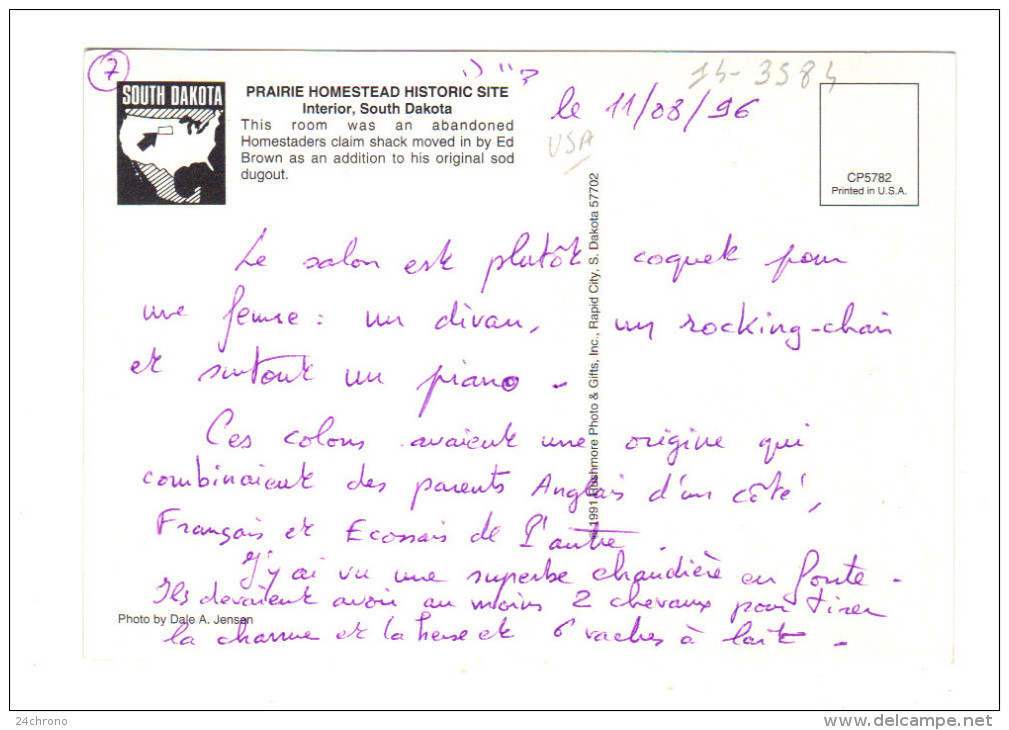 7
SOUTH DAKOTA
PRAIRIE HOMESTEAD HISTORIC SITE
Interior, South Dakota
This room was an abandoned
Homestaders claim shack moved in by Ed
Brown as an addition to his original sod
dugout.
le 11/08/96
USA
CP5782
Printed in U.S.A.
Le salon est plutôt coquet pour
une femme : un divan, un rocking-chair
et surtout un piano -
Ces colons avaient une origine qui
combinaient des parents Anglais d'un côté,
Français et Ecossais de l'autre.
J'y ai vu une superbe chaudière en fonte -
Ils devaient avoir au moins 2 chevaux pour tirer
la charrue et la herse et 6 vaches à lait -
Photo by Dale A. Jensen
© 1991 Rushmore Photo & Gifts, Inc., Rapid City, S. Dakota 57702
24chrono
delcampe.net